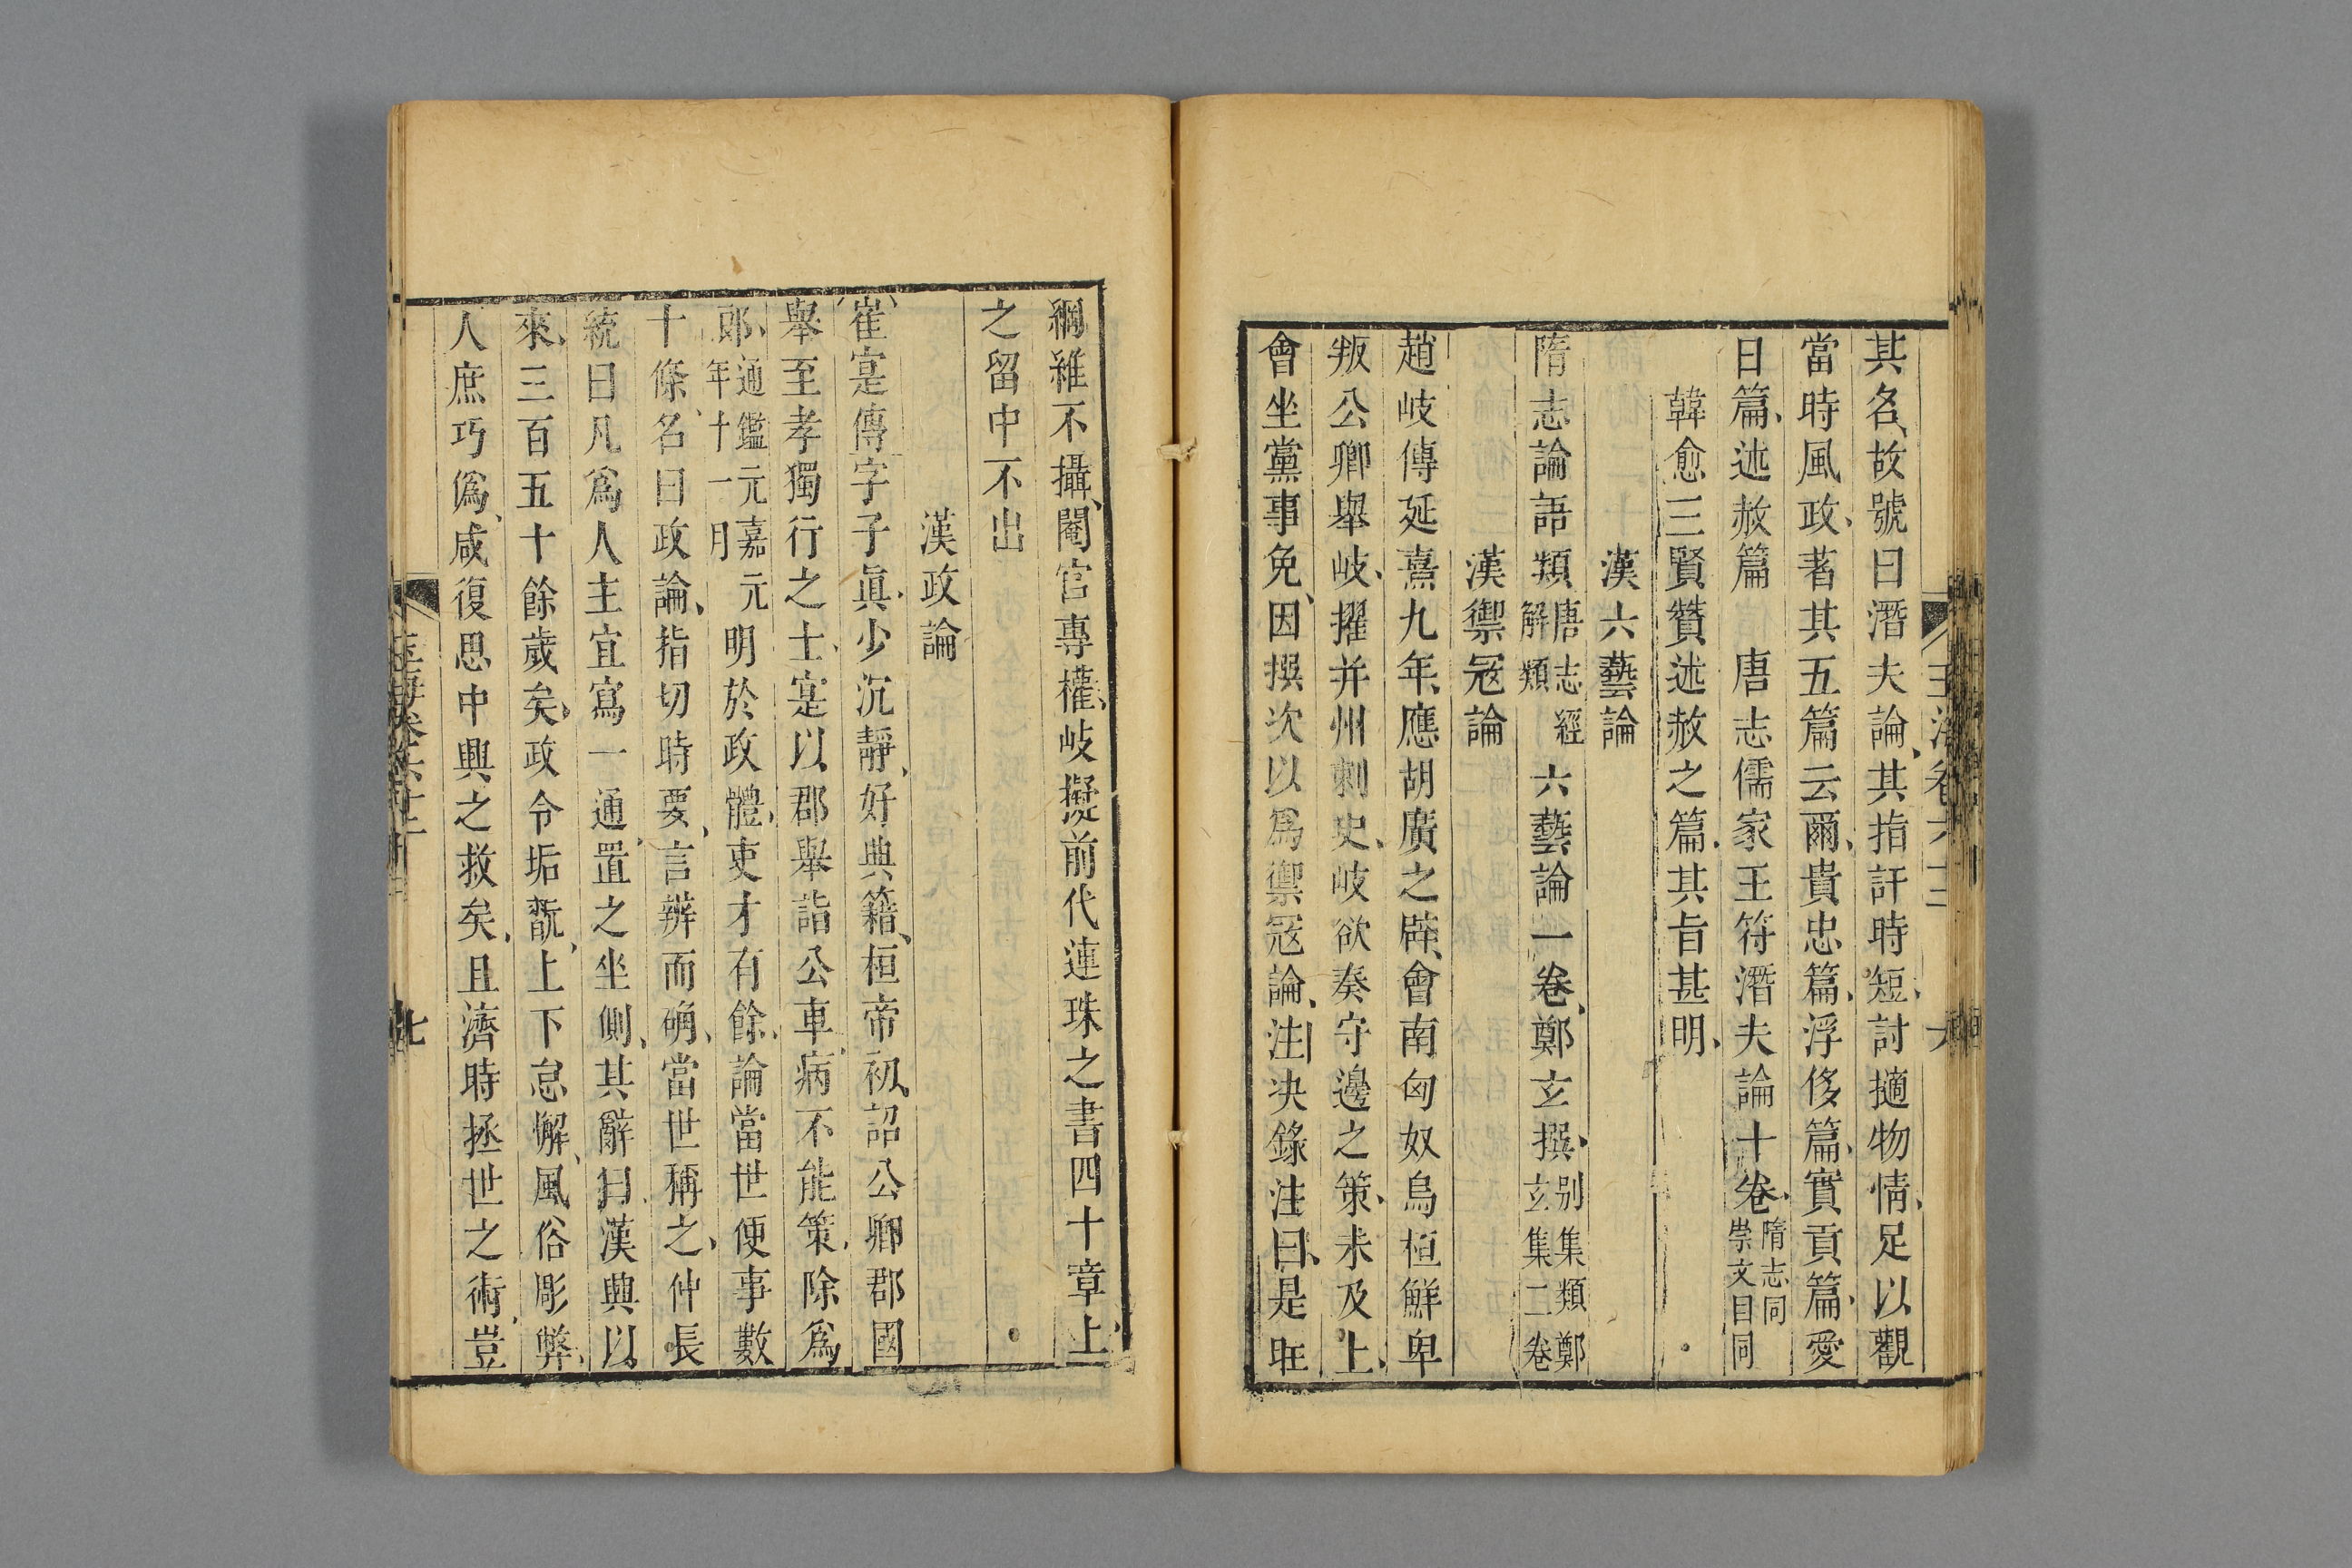 其名、故號曰潛夫論、其指訐時短、討擿物情、足以觀
當時風政、著其五篇云爾、貴忠篇、浮侈篇、實貢篇、愛
日篇、述赦篇　唐志儒家王符潛夫論十卷、隋志同崇文目同
韓愈三賢贊述赦之篇、其旨甚明、
漢六藝論
隋志論語類唐志經解類六藝論一卷、鄭玄撰、別集類鄭玄集二卷
漢禦寇論
趙岐傳延熹九年、應胡廣之辟、會南匈奴烏桓鮮卑
叛公卿舉岐、擢并州刺史、岐欲奏守邊之策、未及上、
會坐黨事免、因撰次以爲禦寇論、注決錄注曰、是旺
綱維不攝、閹官專權、岐擬前代連珠之書四十章上、
之留中不出
漢政論
崔寔傳字子真、少沉靜、好典籍、桓帝初、詔公卿郡國
舉至孝獨行之士、寔以郡舉詣公車、病不能策、除爲
郎、通鑑元嘉元年十一月明於政體、吏才有餘、論當世便事數
十條、名曰政論、指切時要、言辨而确、當世稱之、仲長
統曰凡爲人主宜寫一通、置之坐側、其辭曰、漢興以
來、三百五十餘歲矣、政令垢翫、上下怠懈、風俗彫弊、
人庶巧僞、咸復思中興之救矣、且濟時拯世之術、豈
七